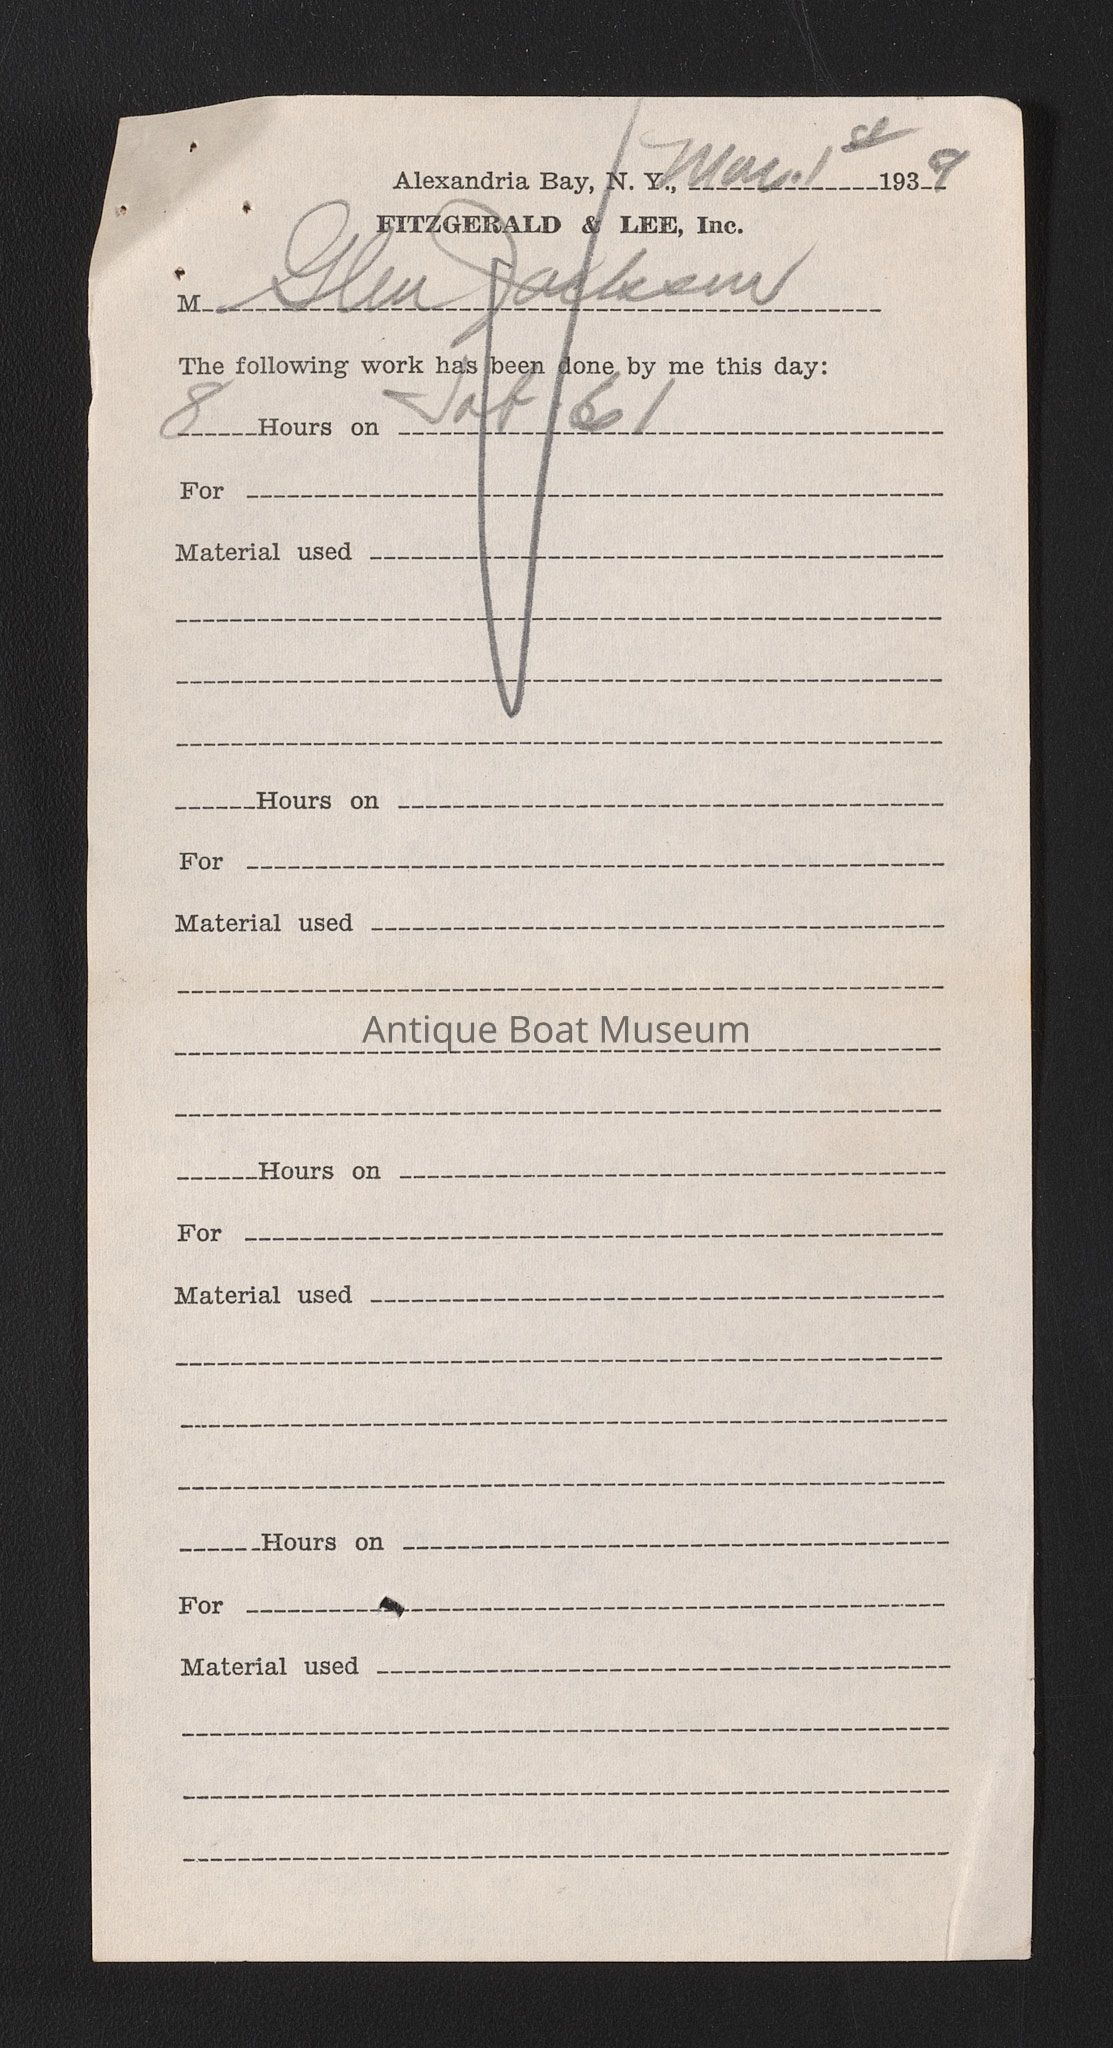 Alexandria Bay, N. Y., Mar. 1st 1939
FITZGERALD & LEE, Inc.
M Glen Jackson
The following work has been done by me this day:
8 Hours on Job 61
For
Material used
Hours on
For
Material used
Antique Boat Museum
Hours on
For
Material used
Hours on
For
Material used